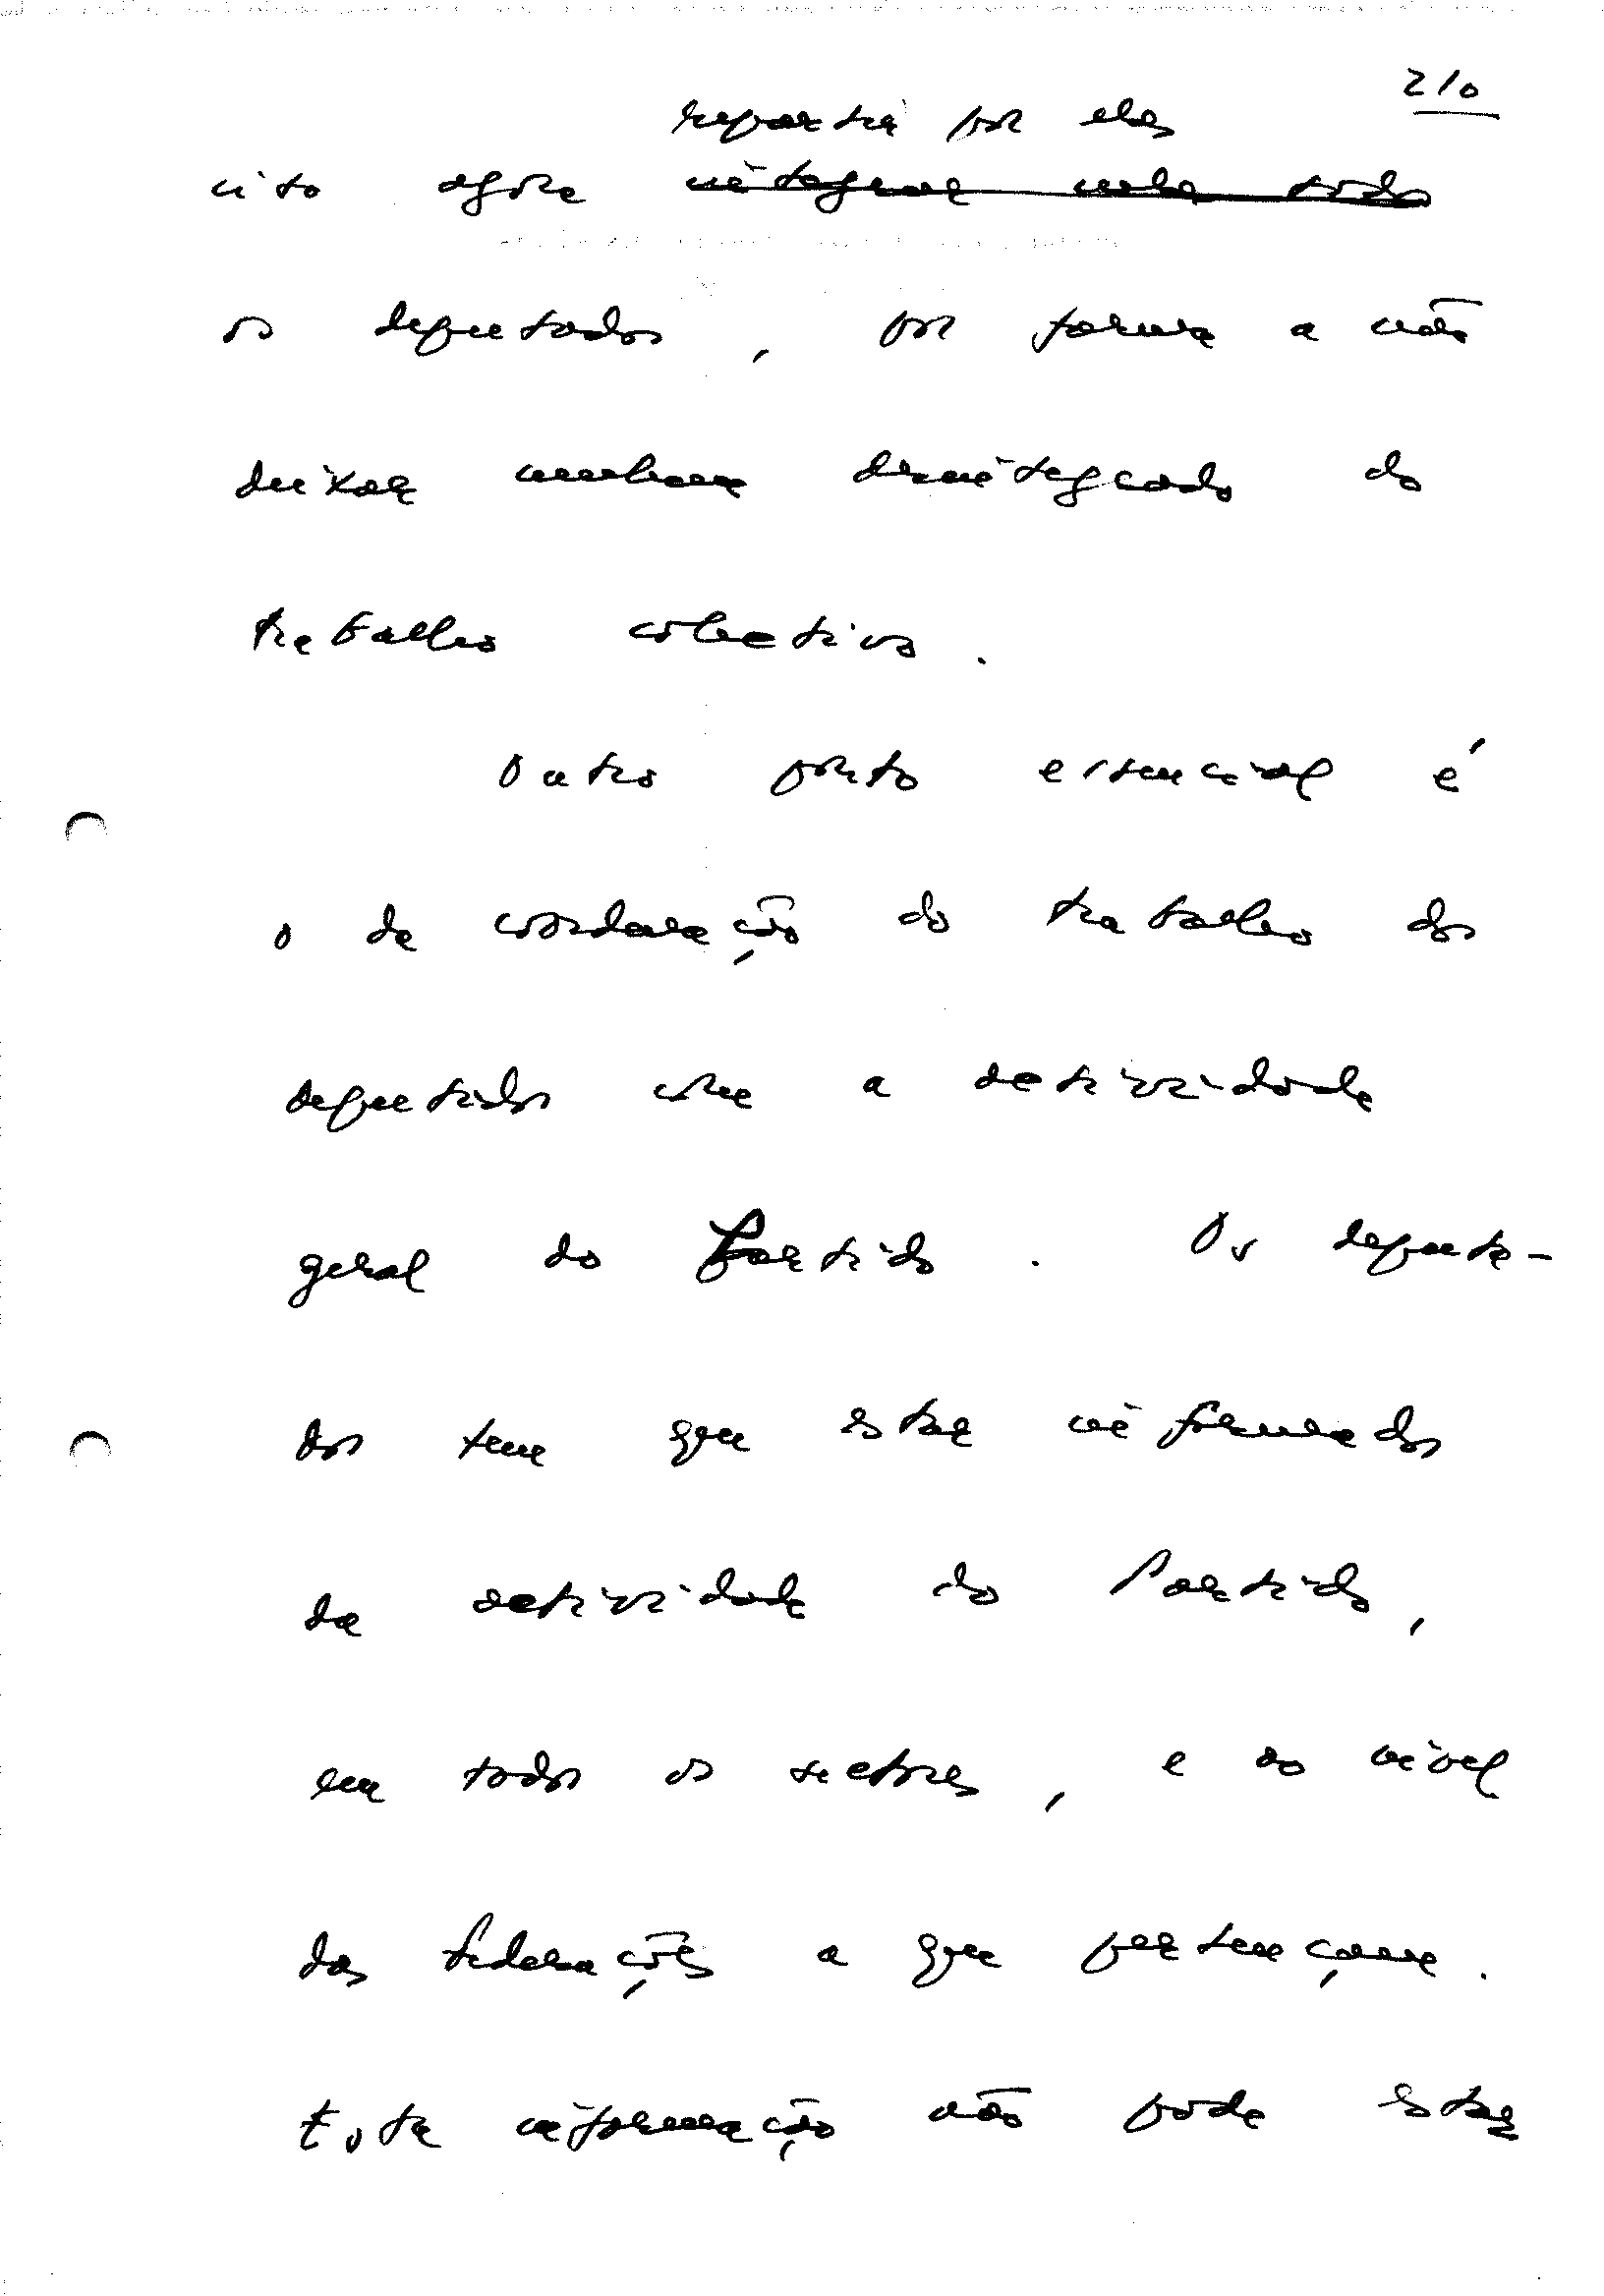 210
repartir por elas
isto agora integrar nela todos
os deputados, por forma a não
deixar nenhum desintegrado do
trabalho colectivo.
Outro ponto essencial é
o da coordenação do trabalho dos
deputados com a actividade
geral do Partido. Os deputa-
dos tem que estar informados
da actividade do Partido,
em todos os sectores, e ao nível
das federações a que pertençam.
Esta informação não pode estar